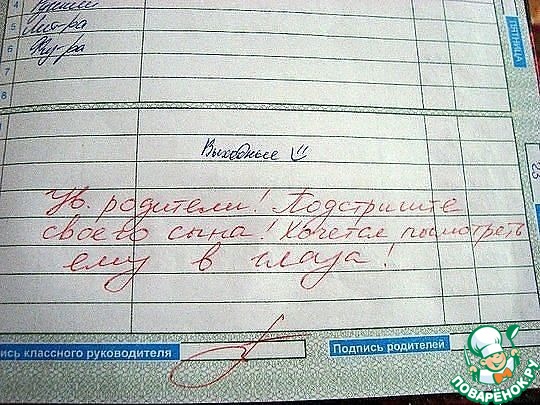 4
5 Лит-ра
6 Физ-ра
7
8
ПЯТНИЦА
Выходные
23
Ув. родители! Подстригите
своего сына! Хочется посмотреть
ему в глаза!
ись классного руководителя
Подпись родителей
ПОВАРЕНОК.РУ